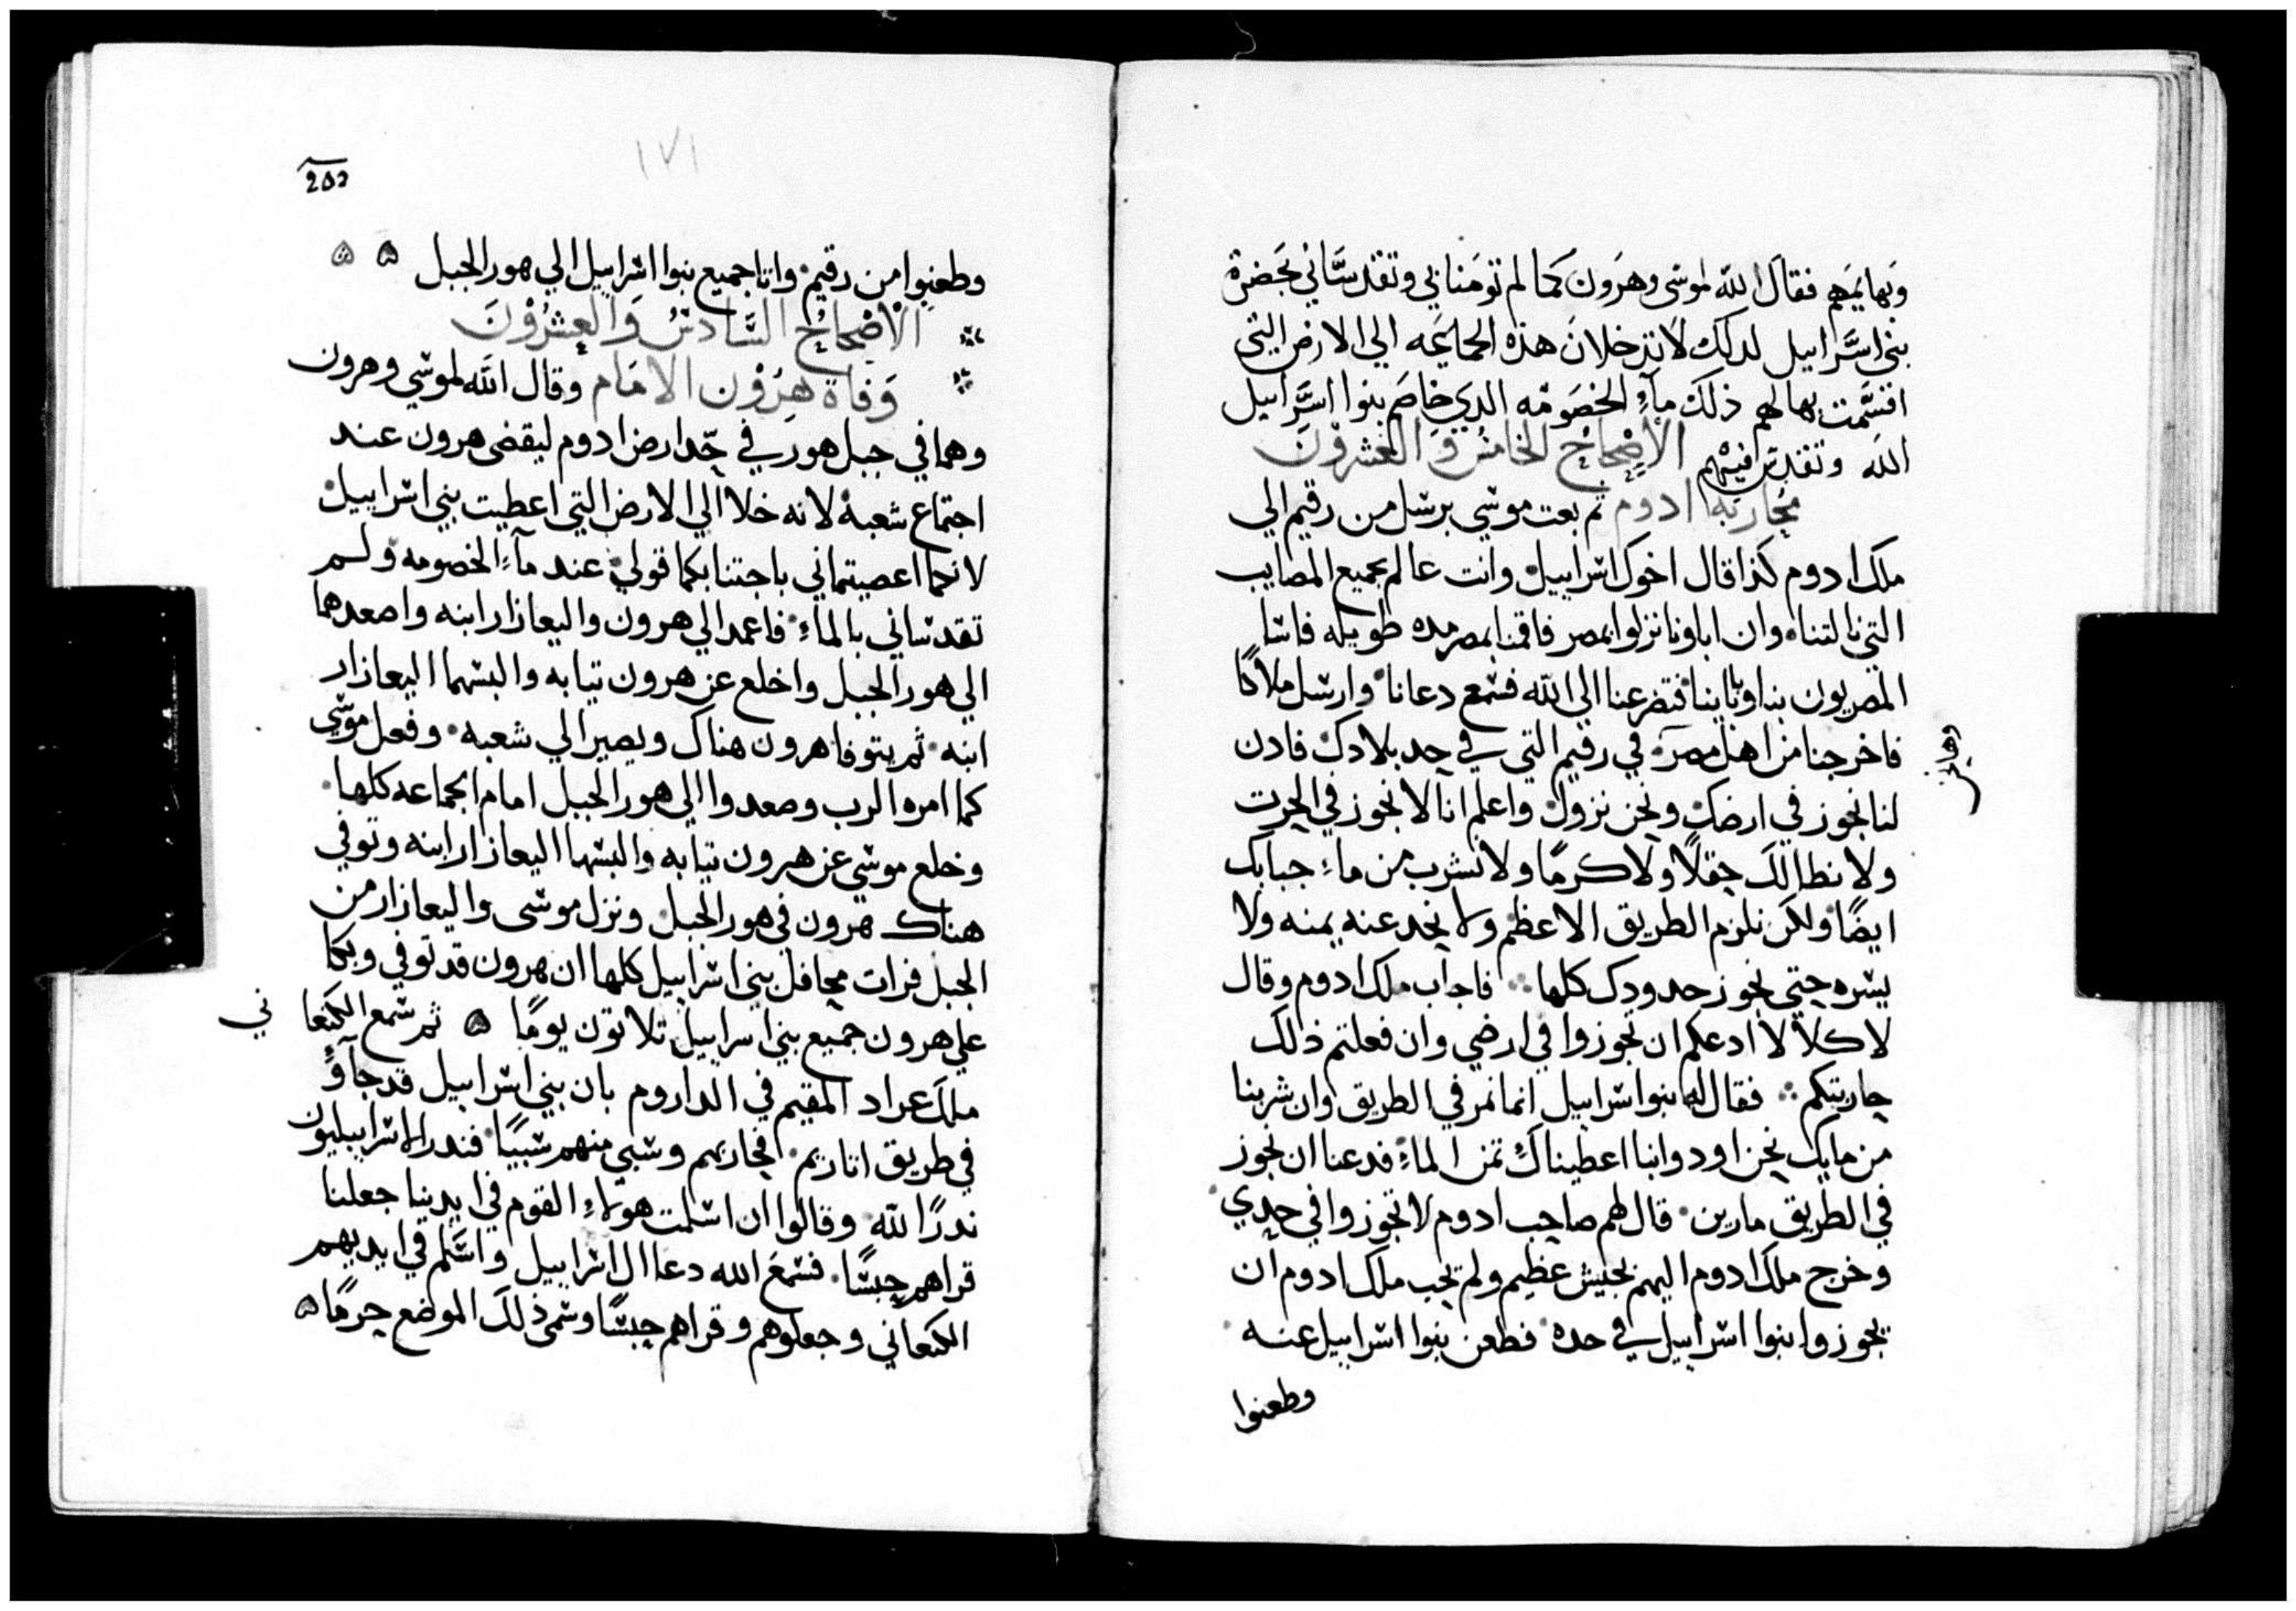 وبهايمهم فقال الله لموسى وهرون كما لم تومنا بي وتقدساني بحضرة
بني اسراييل لدلك لا تدخلان هذه الجماعه الي الارض التي
اقسمت بها لهم ذلك ماء الخصومه الدي خاصم بنوا اسراييل
الله وتقدس فيهم الاصحاح الخامس و العشرون
محاربة ادوم تم بعت موسي برسل من رقيم الي
ملك ادوم كذا قال اخوك اسراييل وانت عالم بجميع المصايب
التي نالتنا وان اباونا نزلوا بمصر فاقمنا بمصر مده طويله فاسا
المصريون بنا وباباينا فتضرعنا الي الله فسمع دعانا وارسل ملاكا
فاخرجنا من اهل مصر في رقيم التي في حد بلادك فادن
وهانحن
لنا نجوز في ارضك ونحن نزول واعلم انا لا نجوز في الحرت
ولا نطا لك حقلا ولا كرما ولا نشرب من ماء جبابك
ايضا ولكن نلزم الطريق الاعظم ولا نحد عنه يمنه ولا
يسره حتي نجوز حدودك كلها فاجاب ملك ادوم وقال
لا كلا لا ادعكم ان تجوزوا في ارضي وان فعلتم ذلك
حاربتكم فقال له بنوا اسراييل انما نمر في الطريق وان شربنا
من مايك نحن او دوابنا اعطيناك تمن الماء فدعنا ان نجوز
في الطريق مارين قال لهم صاحب ادوم لا تجوزوا في حدي
وخرج ملك ادوم اليهم بجيش عظيم ولم يحب ملك ادوم ان
يجوزوا بنوا اسراييل في حده فطعن بنوا اسراييل عنه
وطعنوا
١٧١
202
وطعنوا من رقيم واتا جميع بنوا اسراييل الي هور الجبل ه ه
الاصحاح السادس والعشرون
وفاة هرون الامام وقال الله لموسي وهرون
وهما في جبل هور في حد ارض ادوم ليقضى هرون عند
اجتماع شعبه لانه خلا الي الارض التي اعطيت بني اسراييل
لانكما اعصيتماني باجتنابكما قولي عند ماء الخصومه ولم
تقدساني بالماء فاعمد الي هرون واليعازار ابنه واصعدهما
الي هور الجبل واخلع عن هرون تيابه والبسهما اليعازار
ابنه ثم يتوفا هرون هناك ويصير الي شعبه وفعل موسي
كما امره الرب وصعدوا الي هور الجبل امام الجماعه كلها
وخلع موسي عن هرون تيابه والبسها اليعازار ابنه وتوفي
هناك هرون في هور الجبل ونزل موسى واليعازار من
الجبل فرات محافل بني اسراييل كلها ان هرون قد توفي وبكا
علي هرون جميع بني اسراييل تلاتون يوما ه ثم سمع الكنعا ني
ملك عراد المقيم في الداروم بان بني اسراييل قد جاو
في طريق اتاريم فحاربهم وسبي منهم سبيا فندر الاسراييليون
ندرا لله وقالوا ان اسلمت هولاء القوم في ايدينا جعلنا
قراهم حبسا فسمع الله دعا ال اسراييل واسلم في ايديهم
الكنعاني وجعلوهم وقراهم حبسا وسمي ذلك الموضع حرما ه